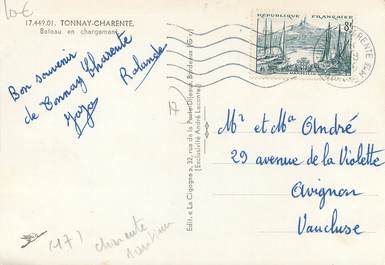 10€
17.449.01. TONNAY-CHARENTE.
Bateau en chargement
Bon souvenir
de Tonnay Charente
Rolande
RÉPUBLIQUE FRANÇAISE
8F
17
Edit. « La Cigogne », 32, rue de la Porte Dijeaux, Bordeaux (Gir.)
(Exclusivité André Leconte)
Mr et Ma André
29 avenue de la Violette
Avignon
Vaucluse
(17) charente